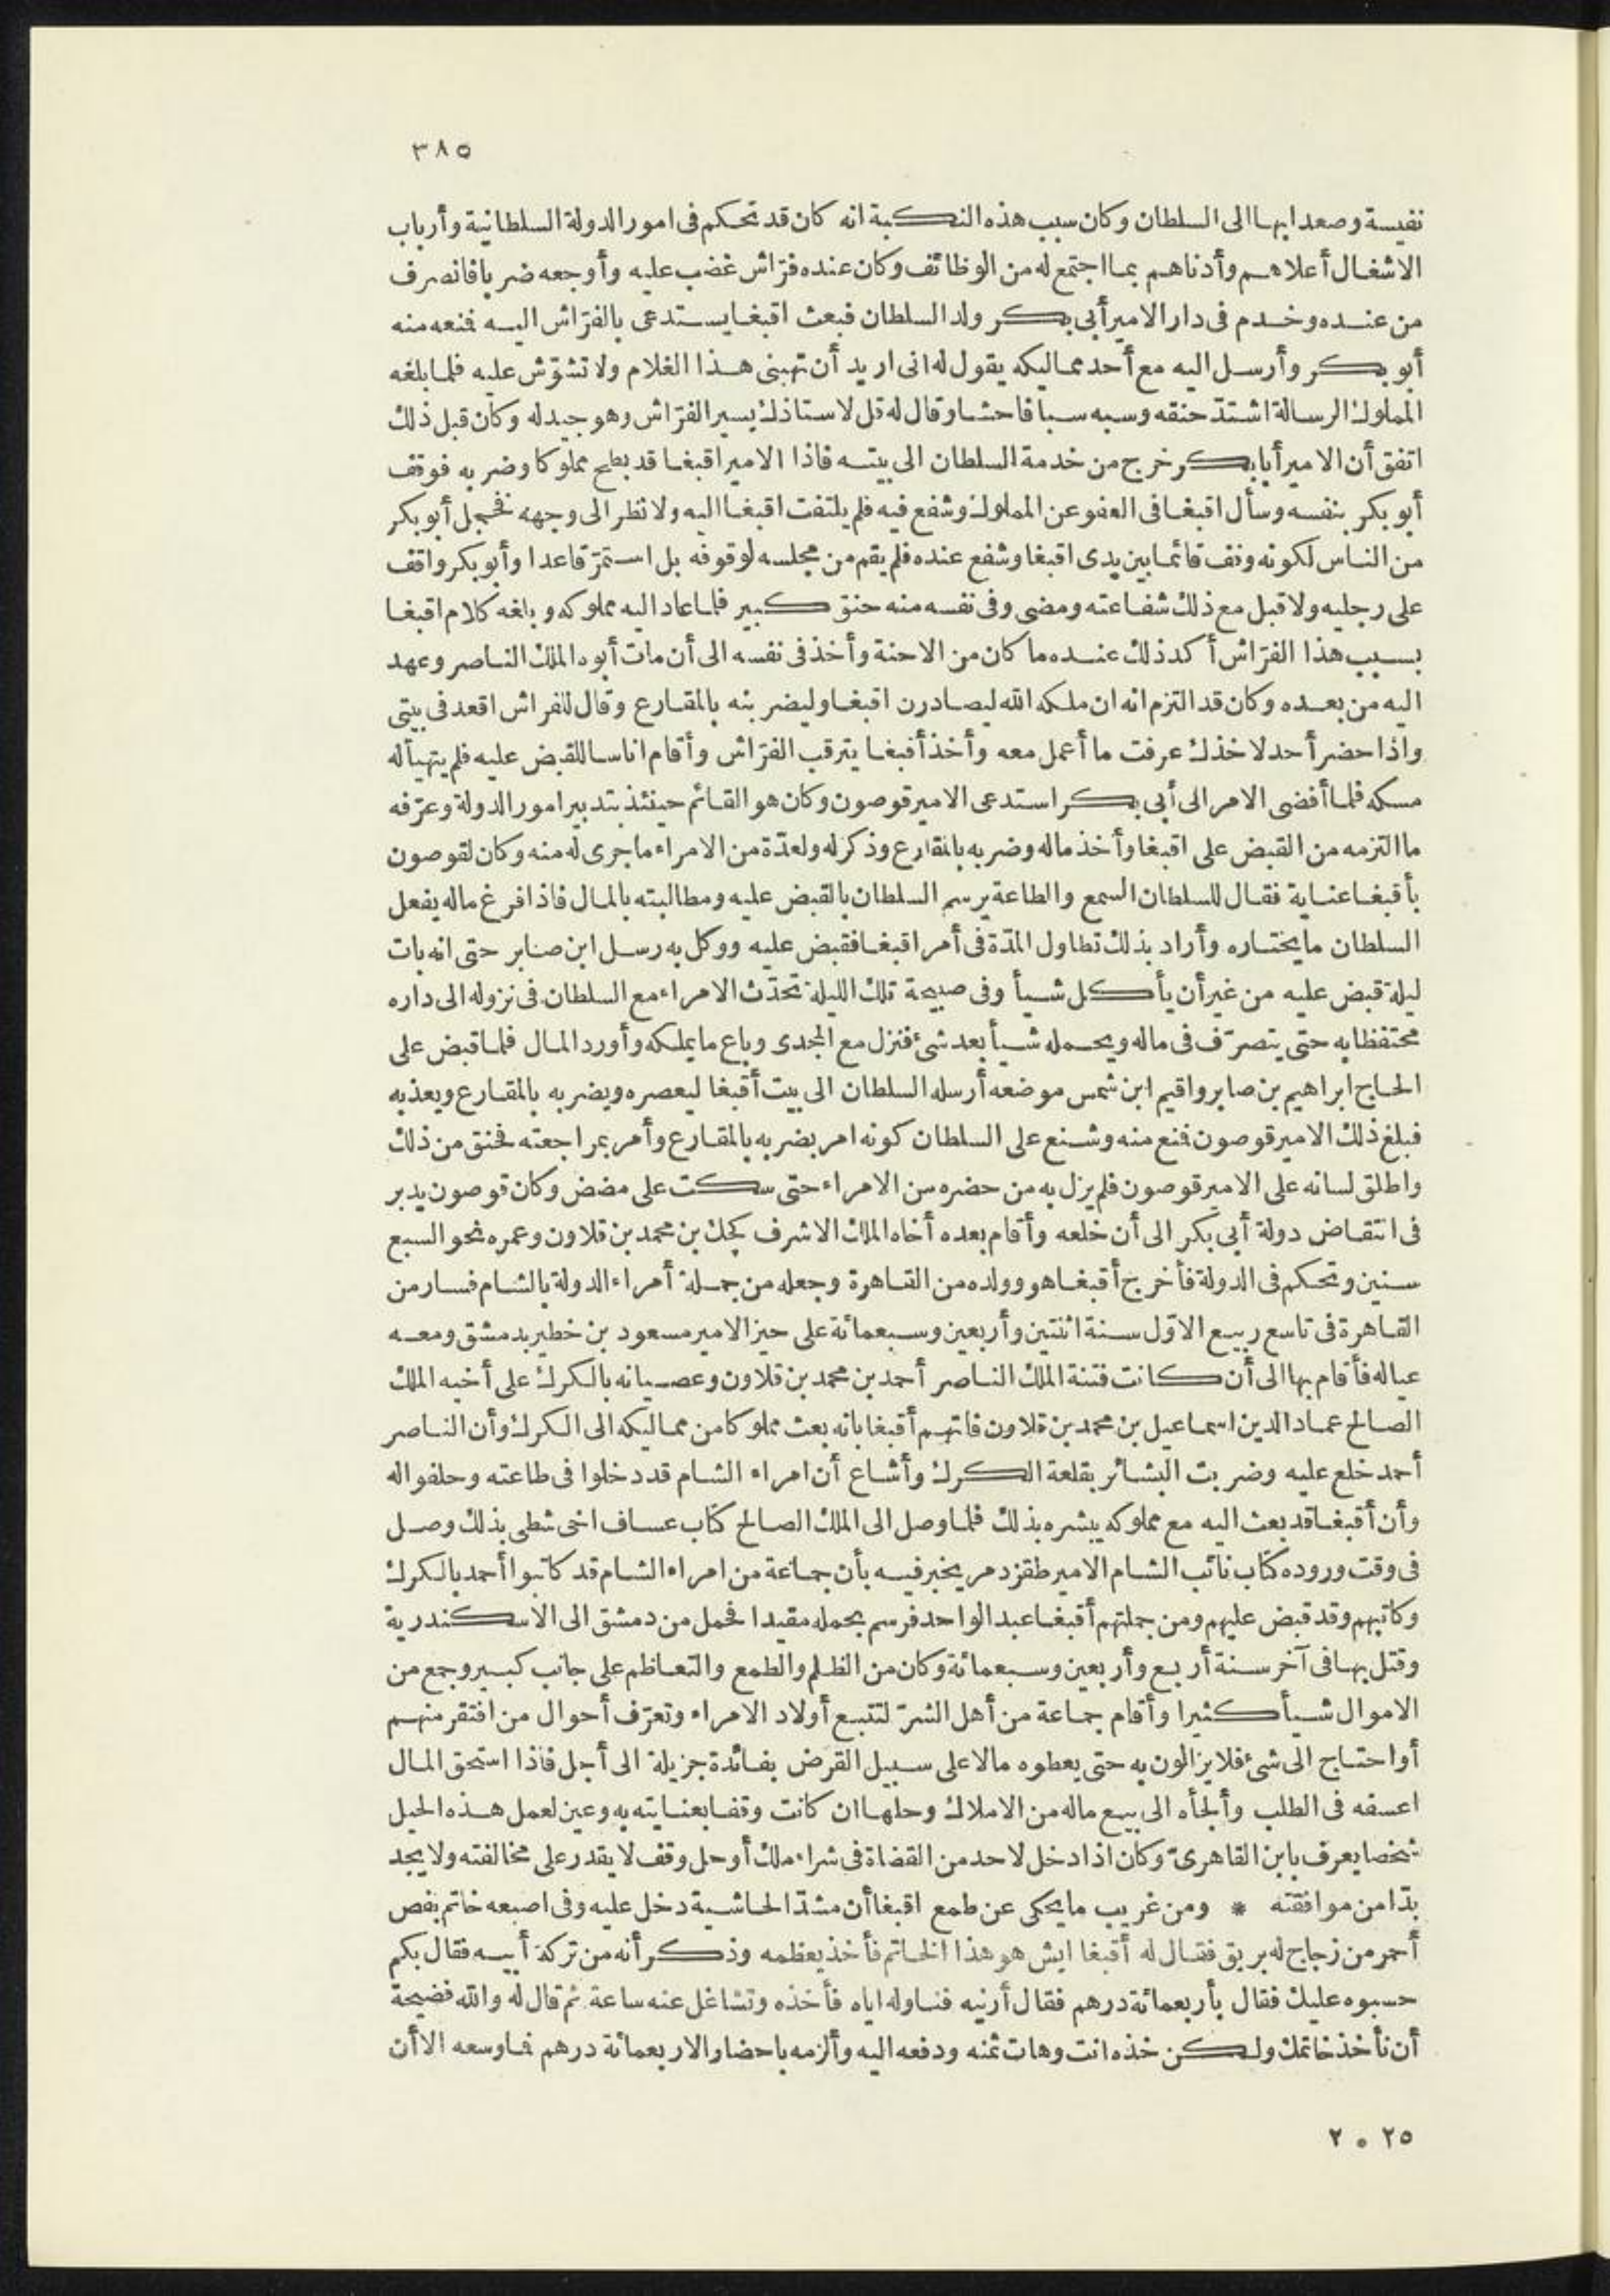 ٣٨٥
نفيسة وصعدا بها الى السلطان وكان سبب هذه النكبة انه كان قد تحكم فى امور الدولة السلطانية وأرباب
الاشغال أعلاهم وأدناهم بما اجتمع له من الوظائف وكان عنده فرّاش غضب عليه وأوجعه ضربا فانصرف
من عنده وخدم فى دار الامير أبى بكر ولد السلطان فبعث اقبغا يستدعى بالفرّاش اليه فنعه منه
أبو بكر وأرسل اليه مع أحد مماليكه يقول له انى اريد أن تهبنى هذا الغلام ولا تشوّش عليه فلما بلغه
المملوك الرسالة اشتدّ حنقه وسبه سبا فاحشا وقال له قل لاستاذك يسير الفرّاش وهو جيد له وكان قبل ذلك
اتفق أن الامير أبا بكر خرج من خدمة السلطان الى بيته فاذا الامير اقبغا قد بطح مملوكا وضربه فوقف
أبو بكر بنفسه وسأل اقبغا فى العفو عن المملوك وشفع فيه فلم يلتفت اقبغا اليه ولا نظر الى وجهه فخجل أبو بكر
من الناس لكونه وقف قائما بين يدى اقبغا وشفع عنده فلم يقم من مجلسه لوقوفه بل استمرّ قاعدا وأبو بكر واقف
على رجليه ولا قبل مع ذلك شفاعته ومضى وفى نفسه منه حنق كبير فلما عاد اليه مملوكه وبلغه كلام اقبغا
بسبب هذا الفرّاش أكد ذلك عنده ما كان من الاحنة وأخذ فى نفسه الى أن مات أبوه الملك الناصر وعهد
اليه من بعده وكان قد التزم انه ان ملكه الله ليصادرن اقبغا وليضربنه بالمقارع وقال للفراش اقعد فى بيتى
واذا حضر أحد لاخذك عرفت ما أعمل معه وأخذ أقبغا يترقب الفرّاش وأقام اناسا للقبض عليه فلم يتهيأ له
مسكه فلما أفضى الامر الى أبى بكر استدعى الامير قوصون وكان هو القائم حينئذ بتدبير امور الدولة وعرّفه
ما التزمه من القبض على اقبغا وأخذ ماله وضربه بالمقارع وذكر له ولعدّة من الامراء ما جرى له منه وكان لقوصون
بأقبغا عناية فقال للسلطان السمع والطاعة يرسم السلطان بالقبض عليه ومطالبته بالمال فاذا فرغ ماله يفعل
السلطان ما يختاره وأراد بذلك تطاول المدّة فى أمر اقبغا فقبض عليه ووكل به رسل ابن صابر حتى انه بات
ليلة قبض عليه من غير أن يأكل شيأ وفى صبيحة تلك الليلة تحدّث الامراء مع السلطان فى نزوله الى داره
محتفظا به حتى يتصرّف فى ماله ويحمله شيأ بعد شئ فنزل مع المجدى وباع ما يملكه وأورد المال فلما قبض على
الحاج ابراهيم بن صابر واقيم ابن شمس موضعه أرسله السلطان الى بيت أقبغا ليعصره ويضربه بالمقارع ويعذبه
فبلغ ذلك الامير قوصون فنع منه وشنع على السلطان كونه امر بضربه بالمقارع وأمر بمراجعته فحنق من ذلك
واطلق لسانه على الامير قوصون فلم يزل به من حضره من الامراء حتى سكت على مضض وكان قوصون يدبر
فى انتقاض دولة أبى بكر الى أن خلعه وأقام بعده أخاه الملك الاشرف كجك بن محمد بن قلاون وعمره نحو السبع
سنين وتحكم فى الدولة فأخرج أقبغا هو وولده من القاهرة وجعله من جملة أمراء الدولة بالشام فسار من
القاهرة فى تاسع ربيع الاوّل سنة اثنتين وأربعين وسبعمائة على حيز الامير مسعود بن خطير بدمشق ومعه
عياله فأقام بها الى أن كانت فتنة الملك الناصر أحمد بن محمد بن قلاون وعصيانه بالكرك على أخيه الملك
الصالح عماد الدين اسماعيل بن محمد بن قلاون فاتهم أقبغا بانه بعث مملوكا من مماليكه الى الكرك وأن الناصر
أحمد خلع عليه وضربت البشائر بقلعة الكرك وأشاع أن امراء الشام قد دخلوا فى طاعته وحلفوا له
وأن أقبغا قد بعث اليه مع مملوكه يبشره بذلك فلما وصل الى الملك الصالح كتاب عساف اخى شطى بذلك وصل
فى وقت وروده كتاب نائب الشام الامير طقزدمر يخبر فيه بأن جماعة من امراء الشام قد كاتبوا أحمد بالكرك
وكاتبهم وقد قبض عليهم ومن جملتهم أقبغا عبد الواحد فرسم بحمله مقيدا فحمل من دمشق الى الاسكندرية
وقتل بها فى آخر سنة أربع وأربعين وسبعمائة وكان من الظلم والطمع والتعاظم على جانب كبير وجمع من
الاموال شيأ كثيرا وأقام جماعة من أهل الشرّ لتتبع أولاد الامراء وتعرّف أحوال من افتقر منهم
أو احتاج الى شئ فلا يزالون به حتى يعطوه مالا على سبيل القرض بفائدة جزيلة الى أجل فاذا استحق المال
اعسفه فى الطلب وألجأه الى بيع ماله من الاملاك وحلها ان كانت وقفا بعنايته به وعين لعمل هذه الحيل
شخصا يعرف بابن القاهرىّ وكان اذا دخل لاحد من القضاة فى شراء ملك أو حل وقف لا يقدر على مخالفته ولا يجد
بدّا من موافقته * ومن غريب ما يحكى عن طمع اقبغا أن مشدّ الحاشية دخل عليه وفى اصبعه خاتم بفص
أحمر من زجاج له بريق فقال له أقبغا ايش هو هذا الخاتم فأخذ يعظمه وذكر أنه من تركة أبيه فقال بكم
حسبوه عليك فقال بأربعمائة درهم فقال أرنيه فناوله اياه فأخذه وتشاغل عنه ساعة ثم قال له والله فضيحة
أن نأخذ خاتمك ولكن خذه انت وهات ثمنه ودفعه اليه وألزمه باحضار الاربعمائة درهم فما وسعه الا أن
٢٥ ٥ ٢